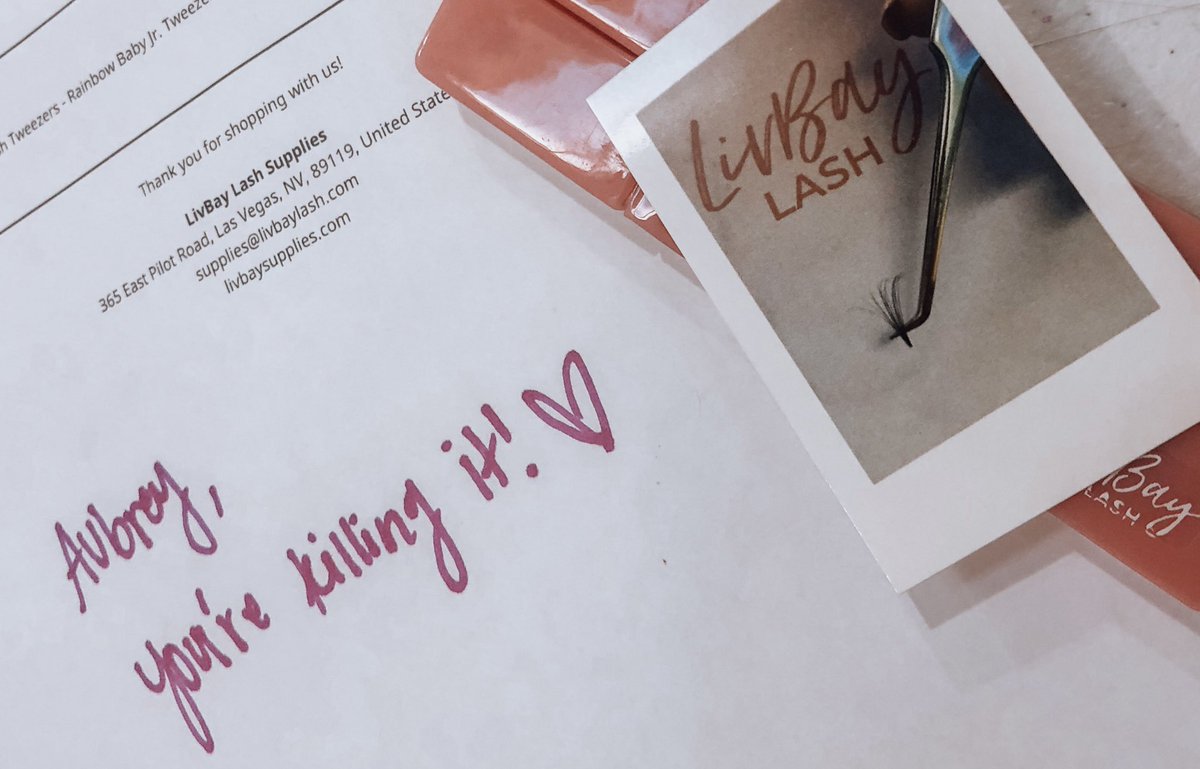 Tweezers - Rainbow Baby Jr. Tweeze
Thank you for shopping with us!
LivBay Lash Supplies
365 East Pilot Road, Las Vegas, NV, 89119, United State
supplies@livbaylash.com
livbaysupplies.com
Aubrey,
you're killing it!
LivBay
LASH
Bay
LASH